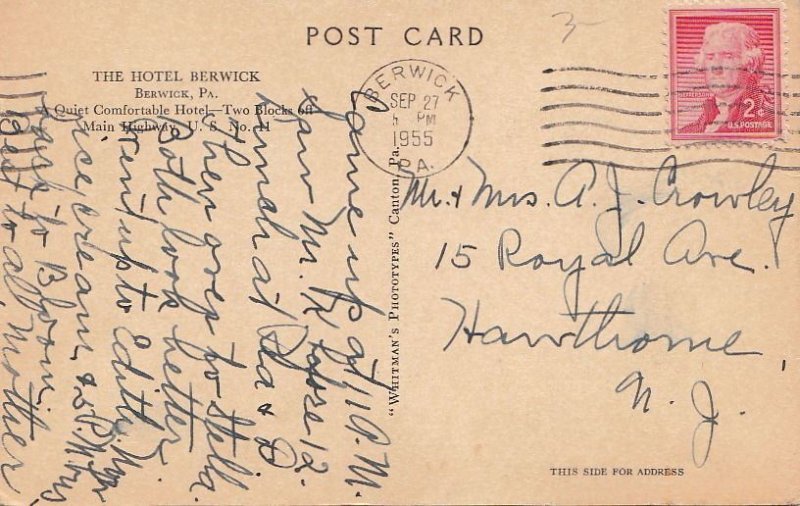 POST CARD
3
THE HOTEL BERWICK
BERWICK, PA.
A Quiet Comfortable Hotel—Two Blocks off
Main Highway, U. S. No. 11
BERWICK
SEP 27
PM
1955
PA.
2¢
U.S. POSTAGE
Came up at 11 A.M.
Saw Mr. K before 12.
Lunch at &
then over to Stella.
Both look better
went up to Edith,
ice cream &
back to Bloom.
Best to all, Mother
"WHITMAN'S PHOTOTYPES" Canton, Pa.
Mr. & Mrs. A. J. Crowley
15 Royal Ave.
Hawthorne
N. J.
THIS SIDE FOR ADDRESS